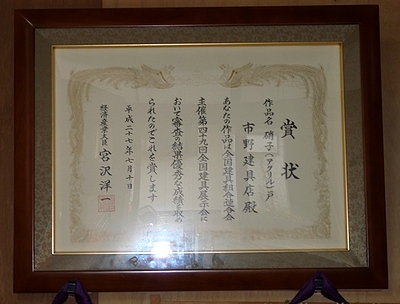 賞状
作品名 硝子(アクリル)戸
市野建具店殿
あなたの作品は全国建具組合連合会
主催第四十九回全国建具展示会に
おいて審査の結果優秀な成績を収め
られたのでこれを賞します
平成二十七年七月十日
経済産業大臣 宮沢洋一